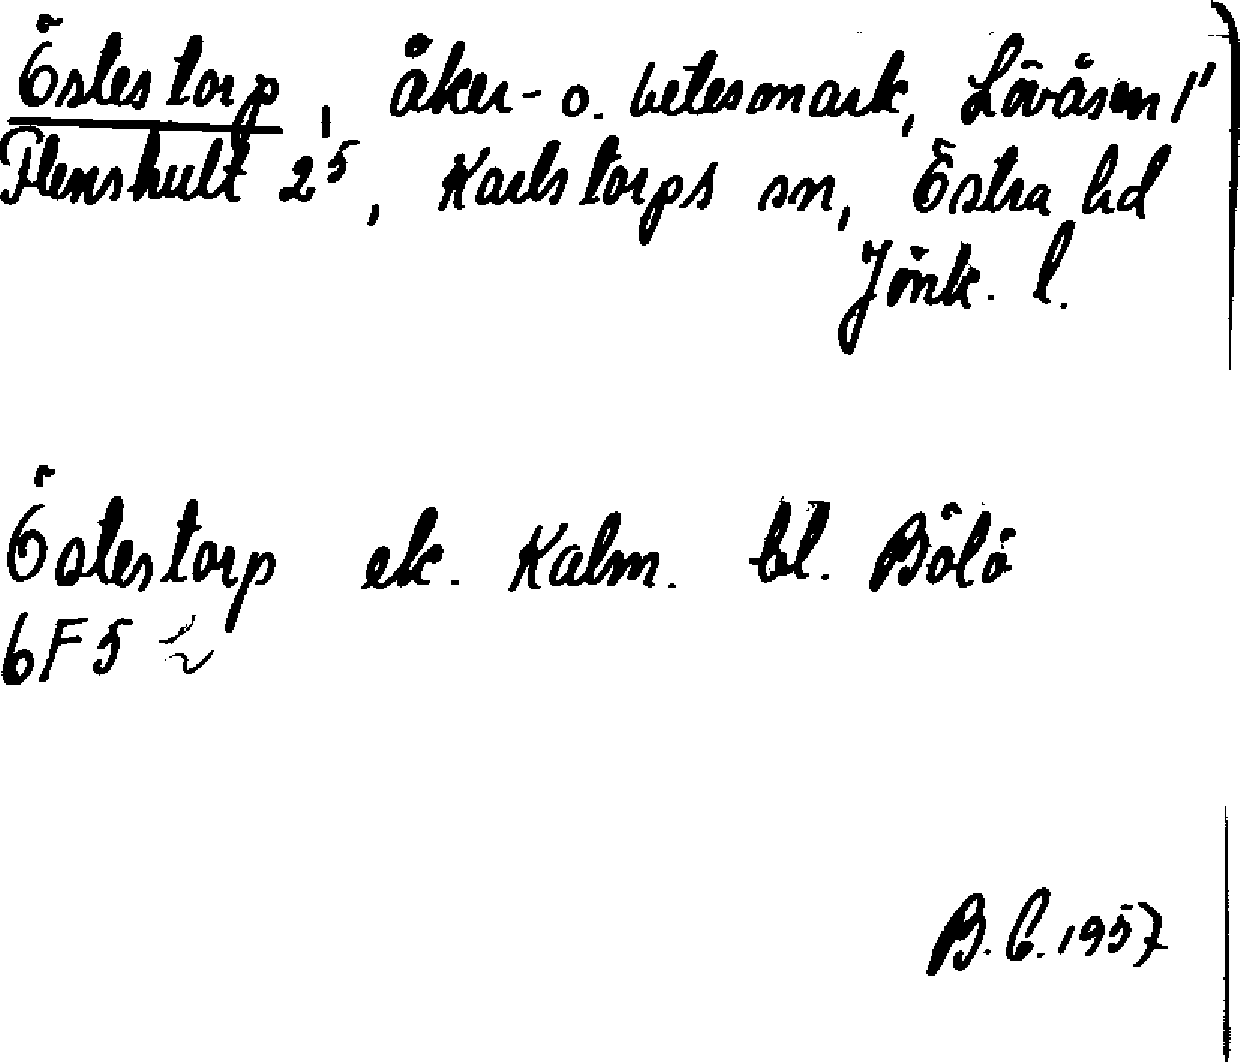 Östestorp, åker- o. betesmark, Lövåsen 1¹
Flenshult 2⁵, Karlstorps sn, Östra hd
Jönk. l.
Östestorp ek. Kalm. bl. Bölö
6F5
B.G. 1957